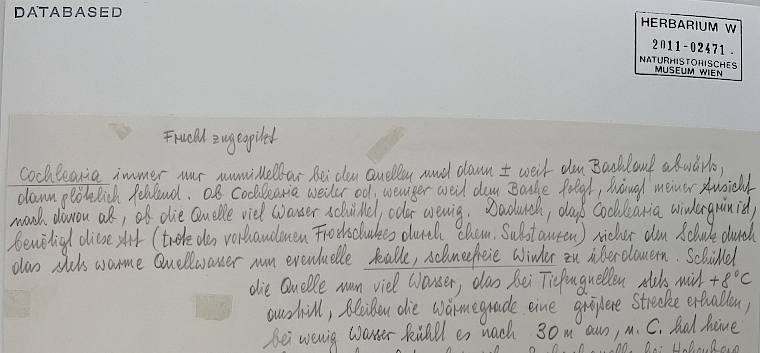 DATABASED
HERBARIUM W
2011-02471.
NATURHISTORISCHES
MUSEUM WIEN
Frucht zugespitzt
Cochlearia immer nur unmittelbar bei den Quellen und dann ± weit den Bachlauf abwärts,
dann plötzlich fehlend. Ob Cochlearia weiter od. weniger weit dem Bache folgt, hängt meiner Ansicht
nach davon ab, ob die Quelle viel Wasser schüttet, oder wenig. Dadurch, daß Cochlearia wintergrün ist,
benötigt diese Art (trotz des vorhandenen Frostschutzes durch chem. Substanzen) sicher den Schutz durch
das stets warme Quellwasser um eventuelle kalte, schneefreie Winter zu überdauern. Schüttet
die Quelle nun viel Wasser, das bei Tiefenquellen stets mit +8°C
austritt, bleiben die Wärmegrade eine größere Strecke erhalten,
bei wenig Wasser kühlt es nach 30 m aus, u. C. hat keine
bei Hohenberg